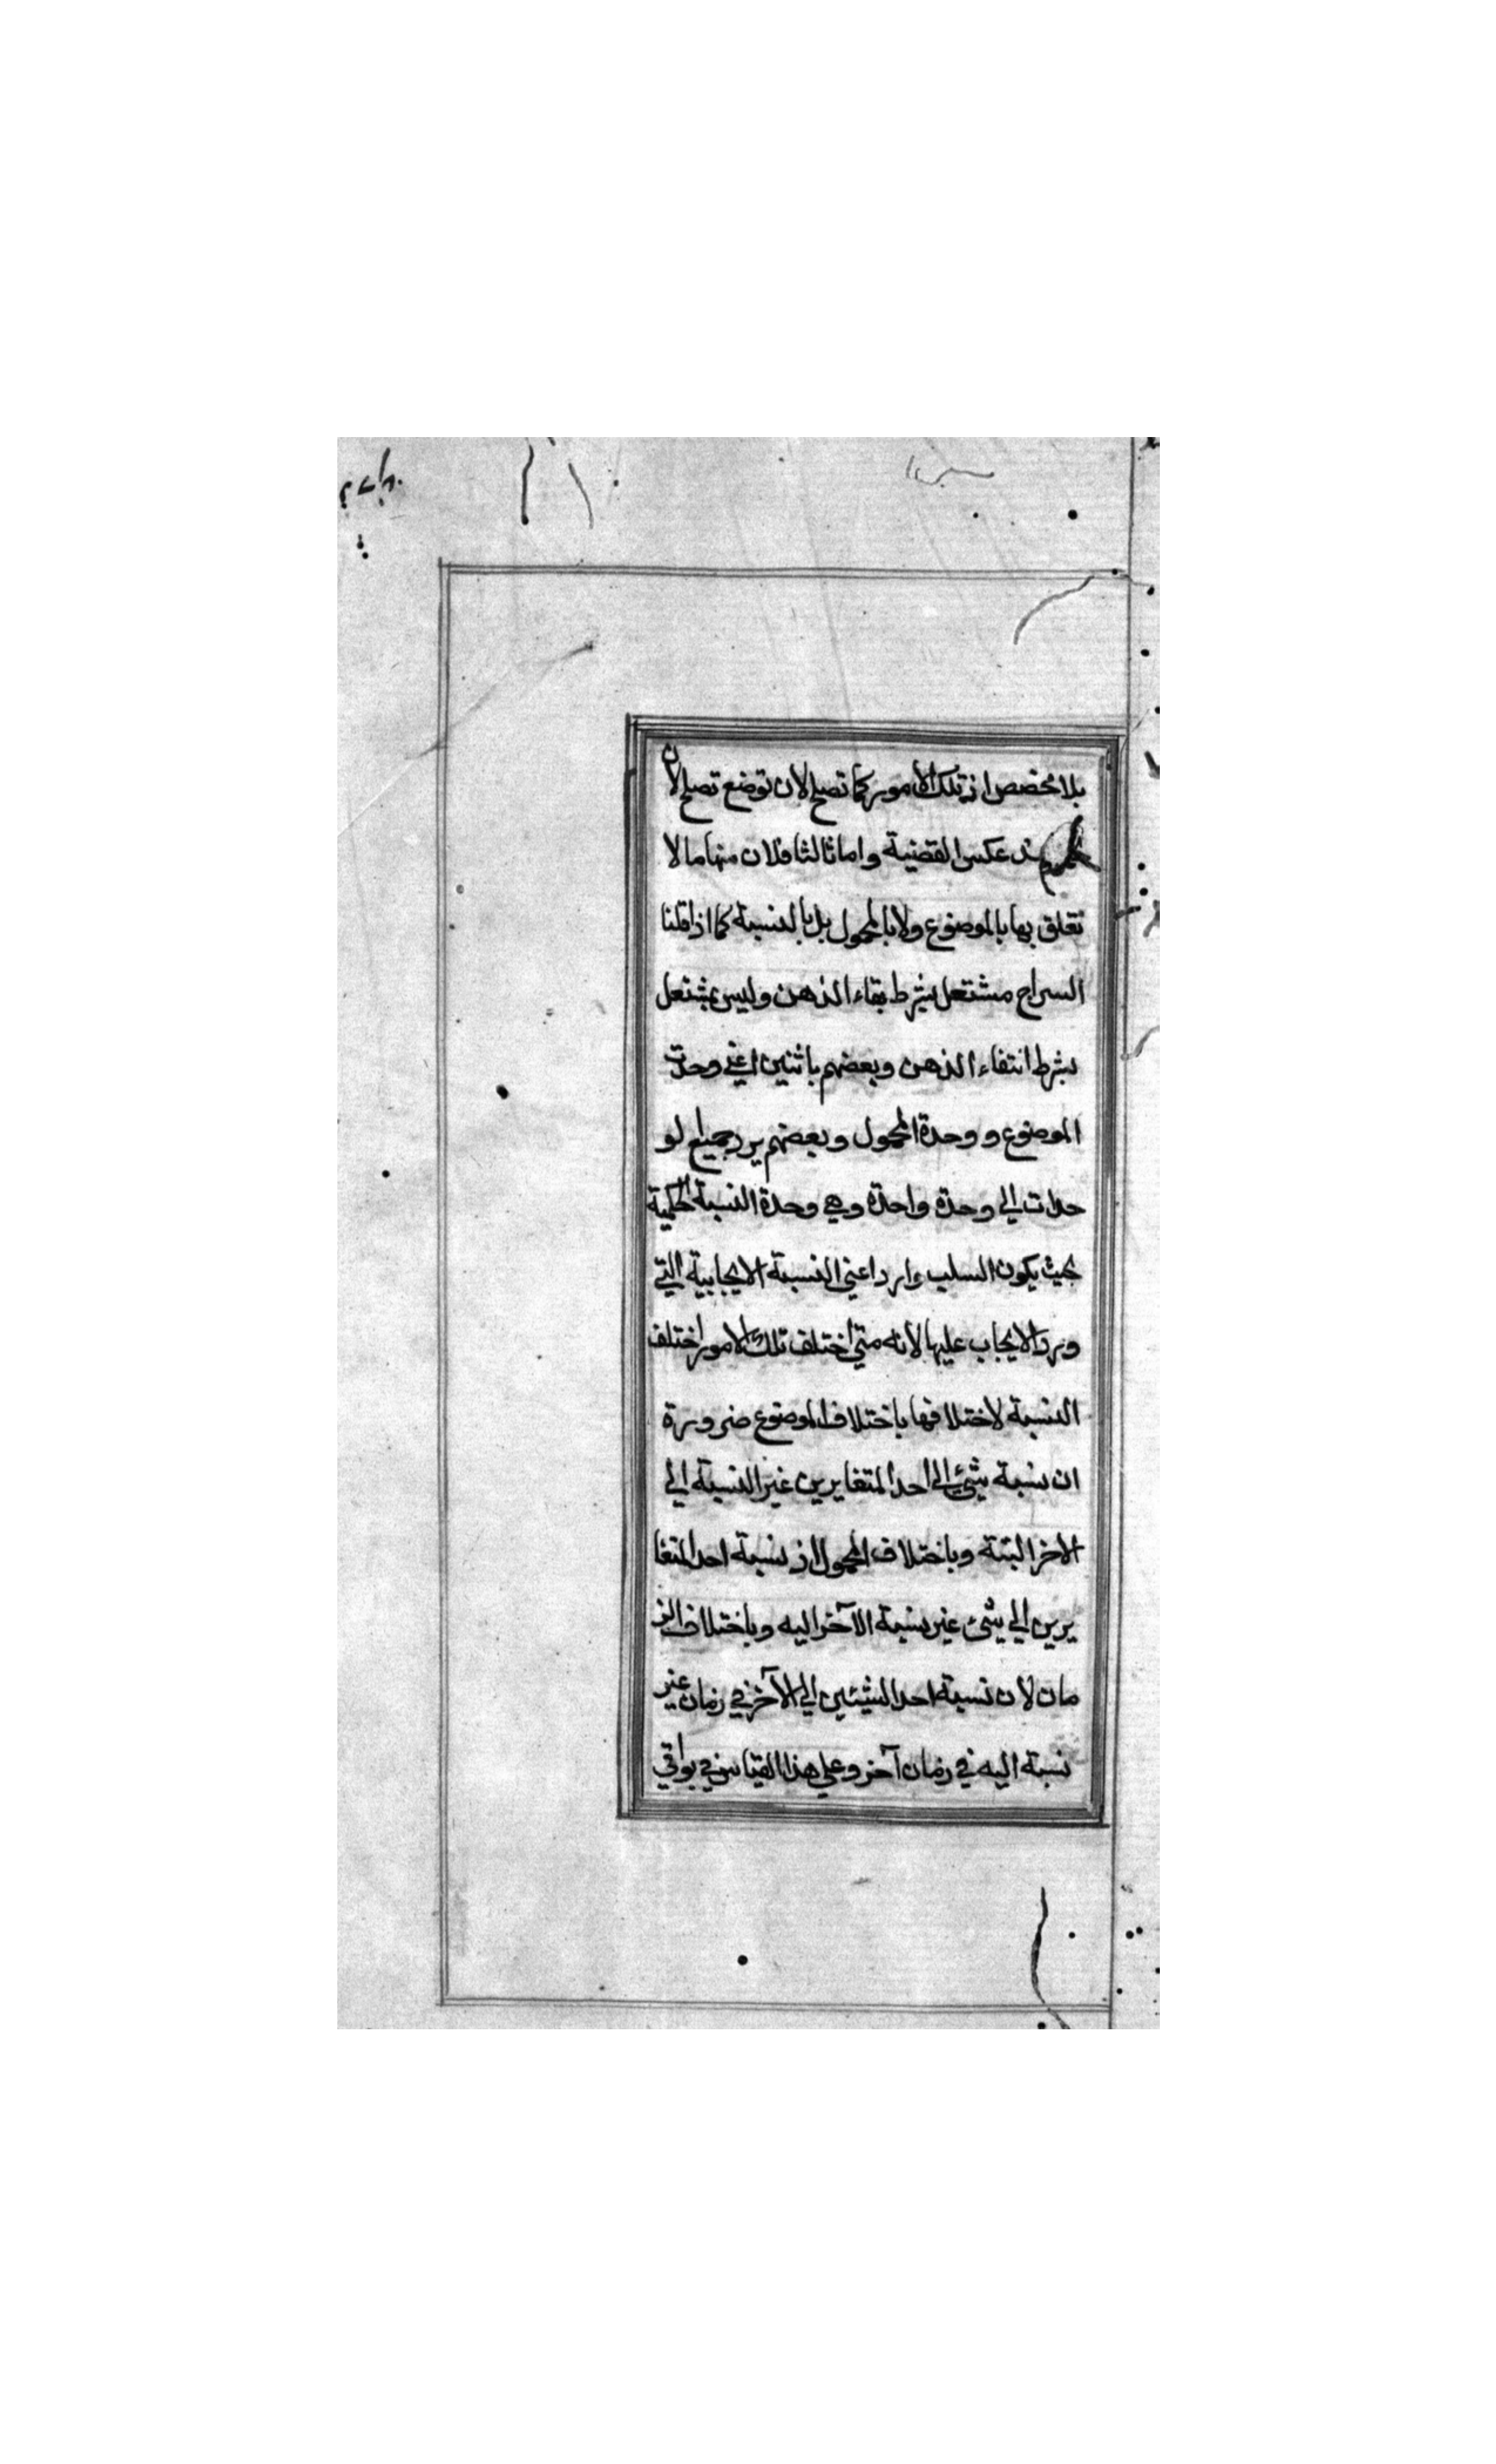 بلا مخصص اذ تلك الامور كما تصلح لان توضع تصلح لان
عند عكس القضية واما ثالثا فلان منها ما لا
تعلق بها بالموضوع ولا بالمحمول بل بالنسبة كما اذا قلنا
السراج مشتعل بشرط بقاء الذهن وليس بمشتعل
بشرط انتفاء الذهن وبعضهم باثنين اعني وحدت
الموضوع و وحدة المحمول وبعضهم يرد جميع لو
حدات الي وحدة واحدة وهي وحدة النسبة الحكمية
بحيث يكون السلب وارد اعني النسبة الايجابية التي
ورد الايجاب عليها لانه متي اختلف تلك الامور اختلف
النسبة لاختلافها باختلاف الموضوع ضرورة
ان نسبة شئ الي احد المتغايرين غير النسبة الي
الاخر البتة وباختلاف المحمول اذ نسبة احد المتغا
يرين الي شئ غير نسبة الآخر اليه وباختلاف الز
مان لان نسبة احد الشيئين الي الآخر في زمان غير
نسبة اليه في زمان آخر وعلي هذا القياس في بواقي